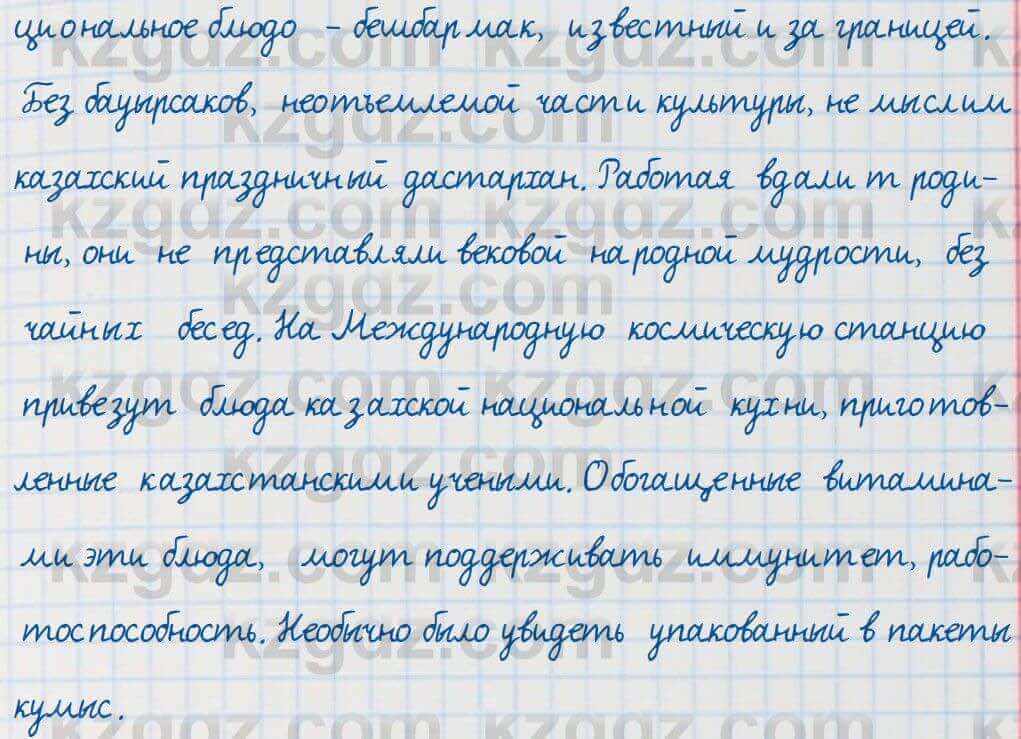 циональное блюдо - бешбармак, известный и за границей.
Без бауырсаков, неотъемлемой части культуры, не мыслим
казахский праздничный дастархан. Работая вдали т роди-
ны, они не представляли вековой народной мудрости, без
чайных бесед. На Международную космическую станцию
привезут блюда казахской национальной кухни, приготов-
ленные казахстанскими учеными. Обогащенные витамина-
ми эти блюда, могут поддерживать иммунитет, рабо-
тоспособность. Необычно было увидеть упакованный в пакеты
кумыс.
kzgdz.com